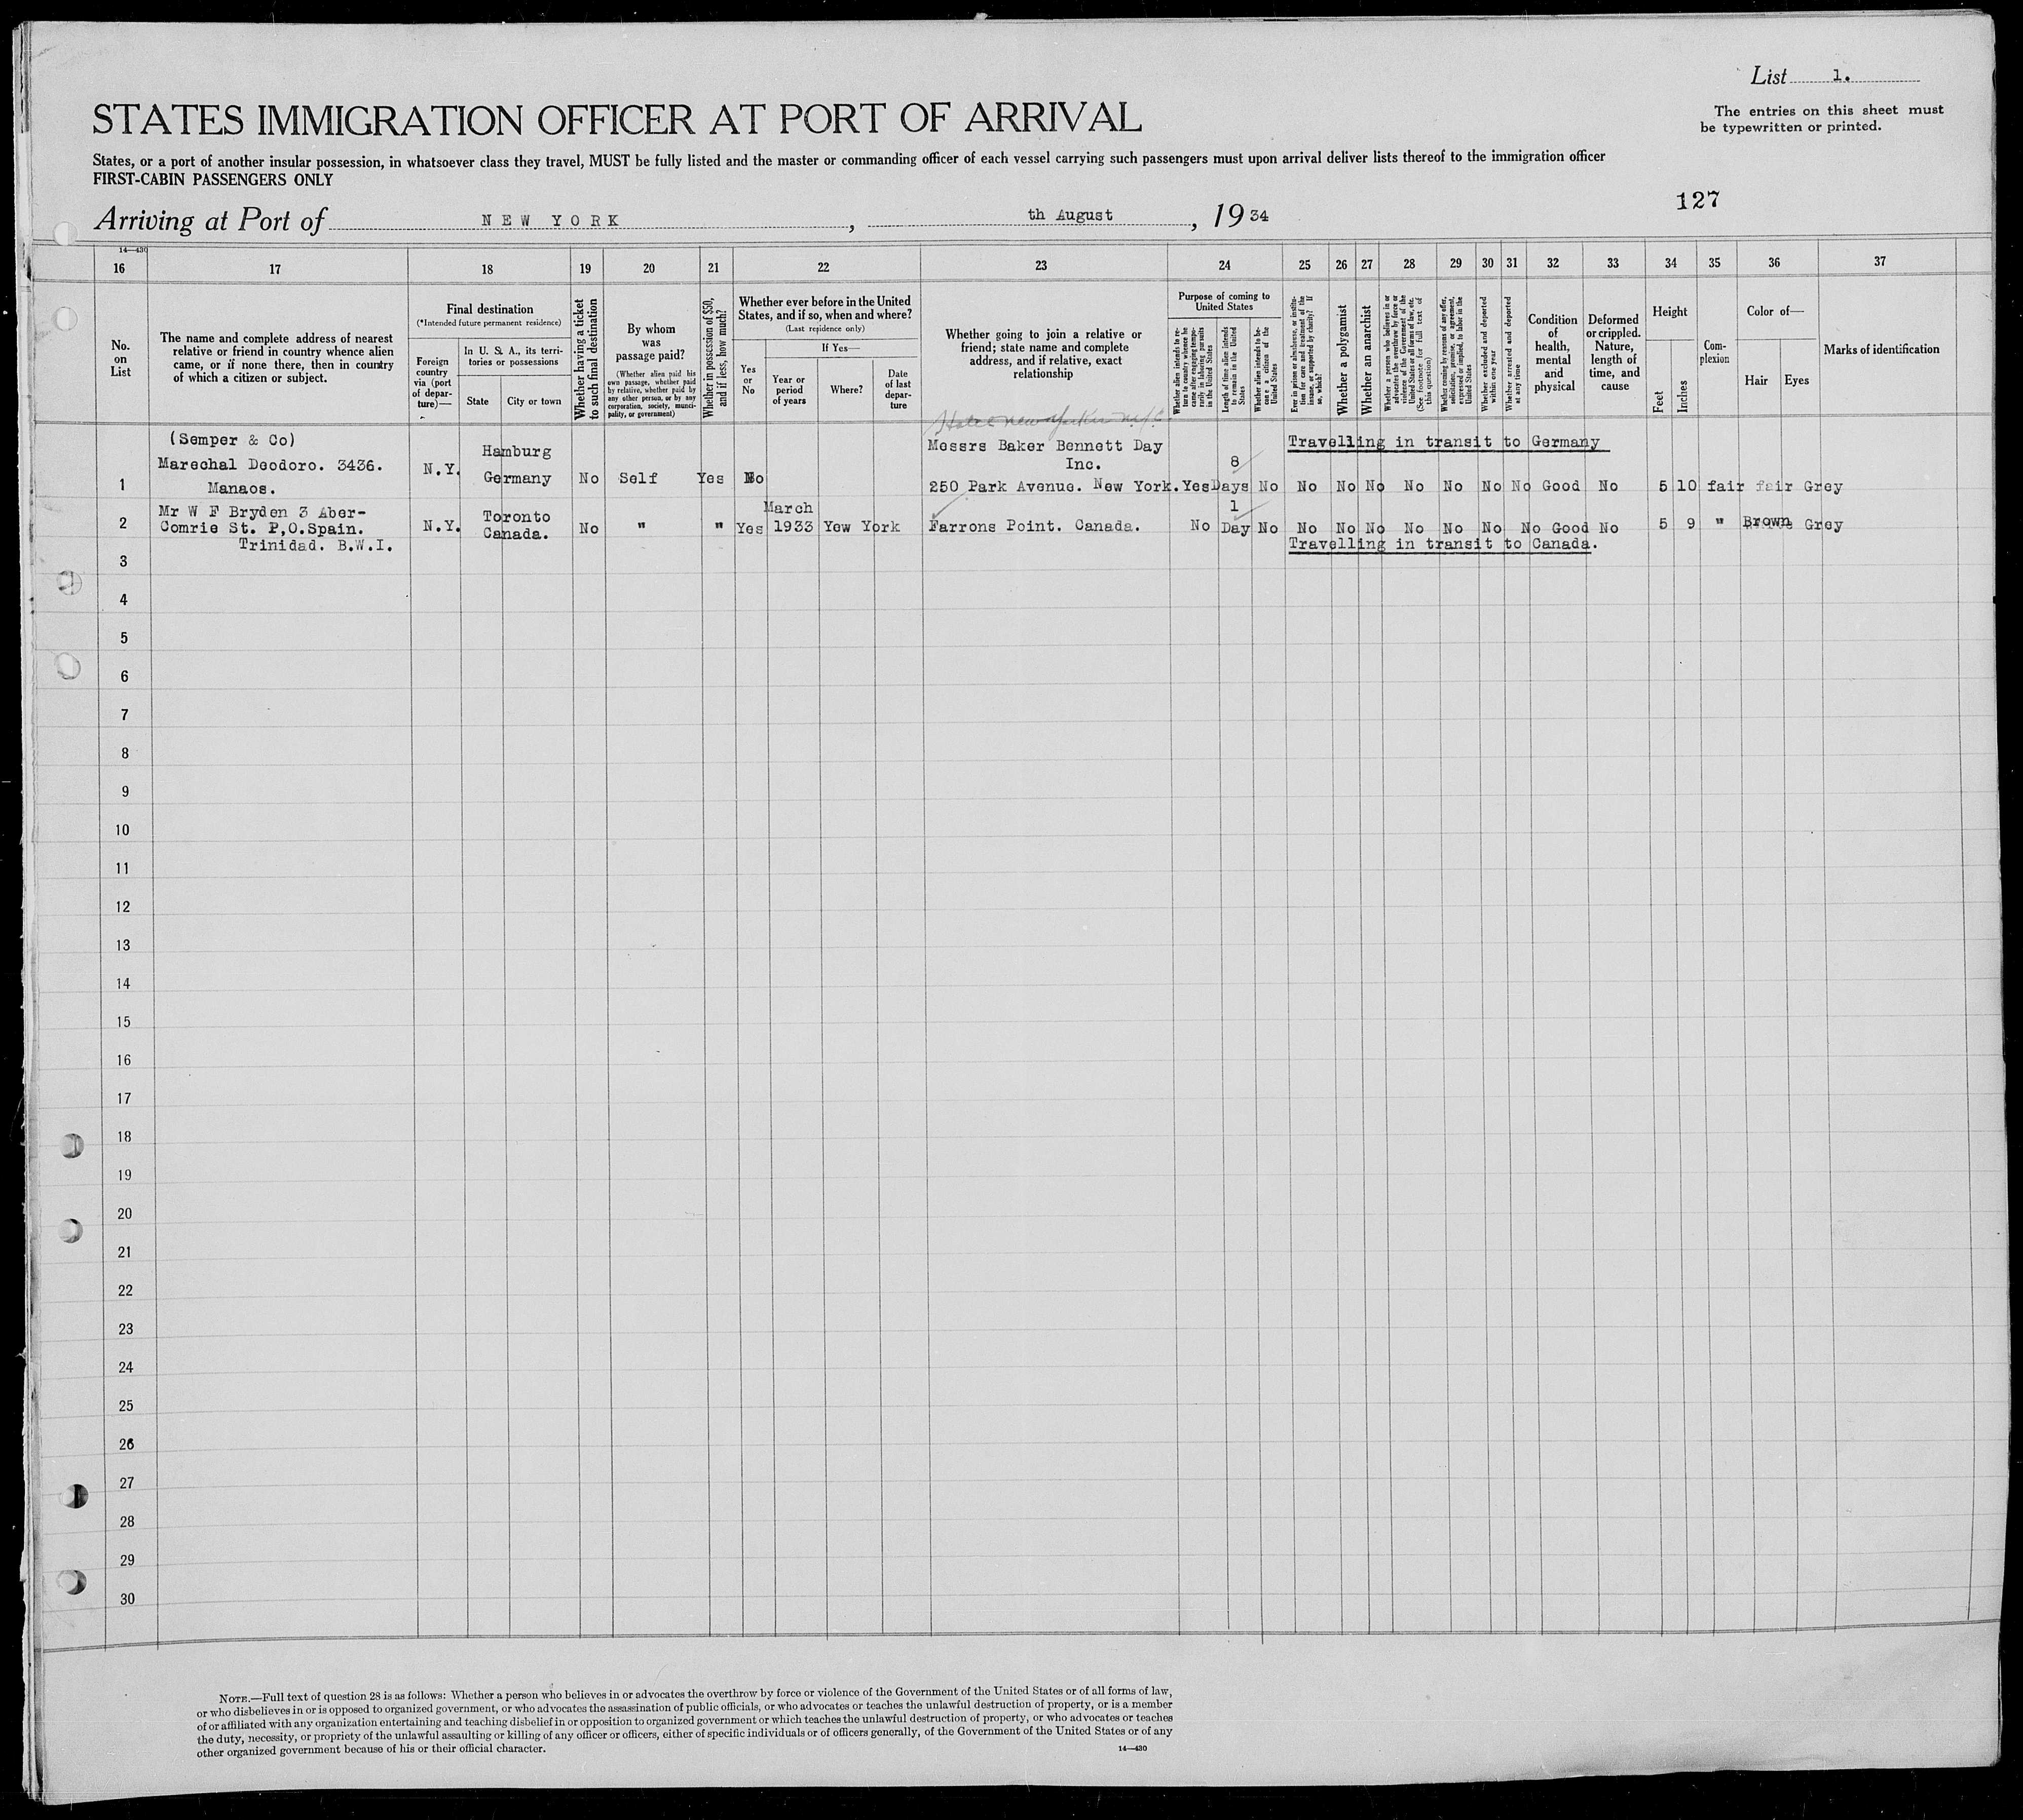 List 1.
STATES IMMIGRATION OFFICER AT PORT OF ARRIVAL
The entries on this sheet must
be typewritten or printed.
States, or a port of another insular possession, in whatsoever class they travel, MUST be fully listed and the master or commanding officer of each vessel carrying such passengers must upon arrival deliver lists thereof to the immigration officer
FIRST-CABIN PASSENGERS ONLY
127
Arriving at Port of NEW YORK, th August, 1934
14—430
16 17 18 19 20 21 22 23 24 25 26 27 28 29 30 31 32 33 34 35 36 37
No.
on
List
The name and complete address of nearest
relative or friend in country whence alien
came, or if none there, then in country
of which a citizen or subject.
Final destination
(*Intended future permanent residence)
Foreign
country
via (port
of depar-
ture)—
In U. S. A., its terri-
tories or possessions
State
City or town
Whether having a ticket
to such final destination
By whom
was
passage paid?
(Whether alien paid his
own passage, whether paid
by relative, whether paid by
any other person, or by any
corporation, society, munici-
pality, or government)
Whether in possession of $50,
and if less, how much?
Whether ever before in the United
States, and if so, when and where?
(Last residence only)
Yes
or
No
If Yes—
Year or
period
of years
Where?
Date
of last
depar-
ture
Whether going to join a relative or
friend; state name and complete
address, and if relative, exact
relationship
Purpose of coming to
United States
Whether alien intends to re-
turn to country whence he
came after engaging tempo-
rarily in laboring pursuits
in the United States
Length of time alien intends
to remain in the United
States
Whether alien intends to be-
come a citizen of the
United States
Ever in prison or almshouse, or institu-
tion for care and treatment of the
insane, or supported by charity? If
so, which?
Whether a polygamist
Whether an anarchist
Whether a person who believes in or
advocates the overthrow by force or
violence of the Government of the
United States or all forms of law, etc.
(See footnote for full text of
this question)
Whether coming by reasons of any offer,
solicitation, promise, or agreement,
expressed or implied, to labor in the
United States
Whether excluded and deported
within one year
Whether arrested and deported
at any time
Condition
of
health,
mental
and
physical
Deformed
or crippled.
Nature,
length of
time, and
cause
Height
Feet
Inches
Com-
plexion
Color of—
Hair
Eyes
Marks of identification
Hotel New Yorker
(Semper & Co)
Marechal Deodoro. 3436.
Manaos.
1
N.Y.
Hamburg
Germany
No Self Yes No
Messrs Baker Bennett Day
Inc.
250 Park Avenue. New York.
Yes
8
Days
No
Travelling in transit to Germany
No No No No No No No Good No 5 10 fair fair Grey
2
Mr W F Bryden 3 Aber-
Comrie St. P,O.Spain.
Trinidad. B.W.I.
N.Y.
Toronto
Canada.
No " " Yes
March
1933
Yew York
Farrons Point. Canada.
No
1
Day
No
No No No No No No No Good No 5 9 " Brown Grey
Travelling in transit to Canada.
3
4
5
6
7
8
9
10
11
12
13
14
15
16
17
18
19
20
21
22
23
24
25
26
27
28
29
30
NOTE.—Full text of question 28 is as follows: Whether a person who believes in or advocates the overthrow by force or violence of the Government of the United States or of all forms of law,
or who disbelieves in or is opposed to organized government, or who advocates the assassination of public officials, or who advocates or teaches the unlawful destruction of property, or is a member
of or affiliated with any organization entertaining and teaching disbelief in or opposition to organized government or which teaches the unlawful destruction of property, or who advocates or teaches
the duty, necessity, or propriety of the unlawful assaulting or killing of any officer or officers, either of specific individuals or of officers generally, of the Government of the United States or of any
other organized government because of his or their official character.
14—430